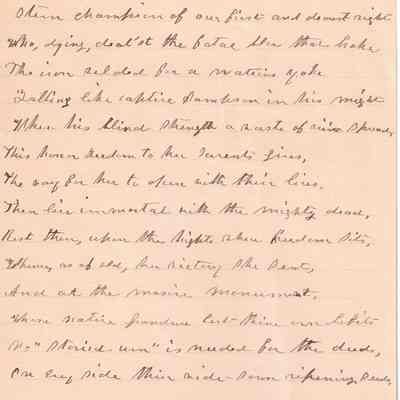 Stern champion of our first and dearest right
Who, dying, dealt'st the fatal blow that broke
The iron welded for a nation's yoke
Falling like captive Sampson in his might
When his blind strength a waste of ruin spreads,
This born freedom to her parents gives,
The way for her to open with their lives.
Then lie immortal with the mighty dead,
Rest then, upon the heights where freedom sits,
Whence, as of old, her victory she sent,
And at the massive monument,
Whose native grandeur best thine own befits
No "storied urn" is needed for the deeds,
On every side thin wide-sown ripening seeds